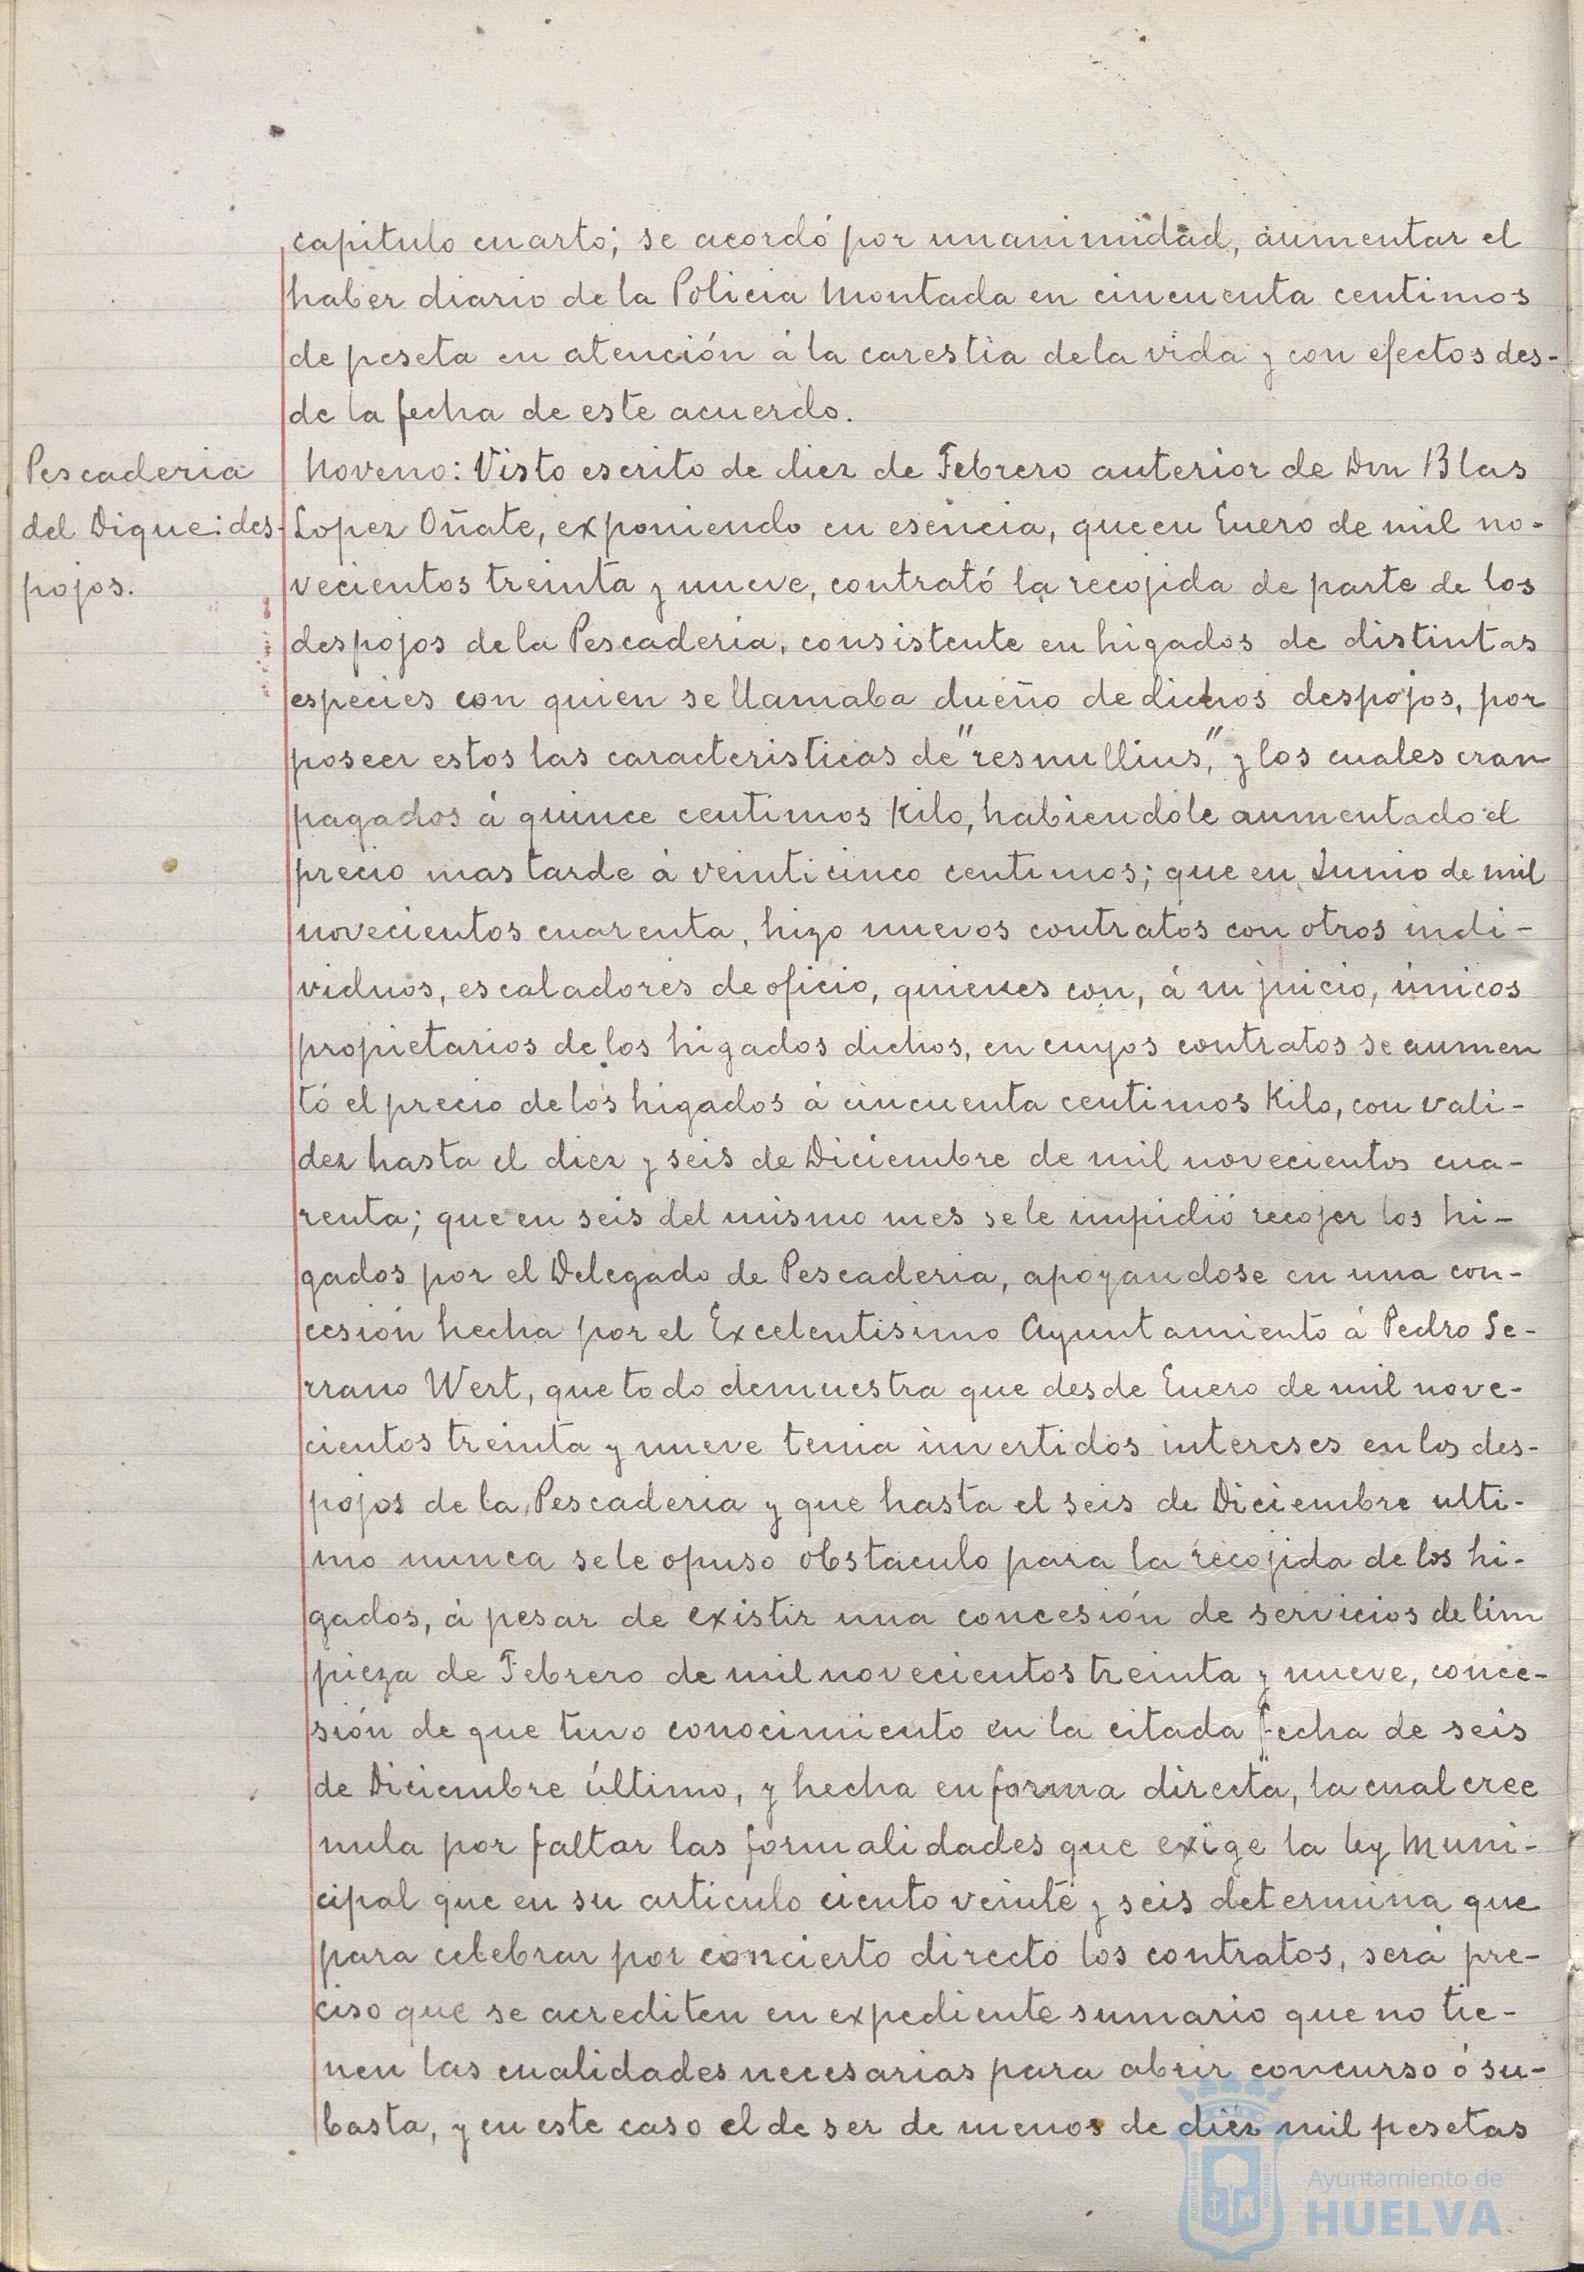 capitulo cuarto; se acordó por unanimidad, aumentar el
haber diario de la Policia Montada en cincuenta centimos
de peseta en atención á la carestia de la vida y con efectos des-
de la fecha de este acuerdo.
Pescaderia
del Dique: des-
pojos.
Noveno: Visto escrito de diez de Febrero anterior de Don Blas
Lopez Oñate, exponiendo en esencia, que en Enero de mil no-
vecientos treinta y nueve, contrató la recojida de parte de los
despojos de la Pescaderia, consistente en higados de distintas
especies con quien se llamaba dueño de dichos despojos, por
poseer estos las caracteristicas de "resnullius", y los cuales eran
pagados á quince centimos Kilo, habiendole aumentado el
precio mas tarde á veinticinco centimos; que en Junio de mil
novecientos cuarenta, hizo nuevos contratos con otros indi-
viduos, escaladores de oficio, quienes con, á su juicio, únicos
propietarios de los higados dichos, en cuyos contratos se aumen
tó el precio de los higados á cincuenta centimos Kilo, con vali-
dez hasta el diez y seis de Diciembre de mil novecientos cua-
renta; que en seis del mismo mes se le impidió recojer los hi-
gados por el Delegado de Pescaderia, apoyandose en una con-
cesión hecha por el Excelentisimo Ayuntamiento á Pedro Se-
rrano Wert, que todo demuestra que desde Enero de mil nove-
cientos treinta y nueve tenia invertidos intereses en los des-
pojos de la Pescaderia y que hasta el seis de Diciembre ulti-
mo nunca se le opuso obstaculo para la recojida de los hi-
gados, á pesar de existir una concesión de servicios de lim
pieza de Febrero de mil novecientos treinta y nueve, conce-
sión de que tuvo conocimiento en la citada fecha de seis
de Diciembre último, y hecha en forma directa, la cual cree
nula por faltar las formalidades que exige la ley Muni-
cipal que en su articulo ciento veinte y seis determina que
para celebrar por concierto directo los contratos, será pre-
ciso que se acrediten en expediente sumario que no tie-
nen las cualidades necesarias para abrir concurso ó su-
basta, y en este caso el de ser de menos de diez mil pesetas
Ayuntamiento de
HUELVA